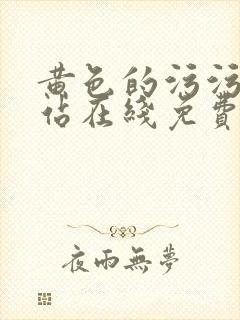 黄色的污污
佔在綫免費
夜雨無夢